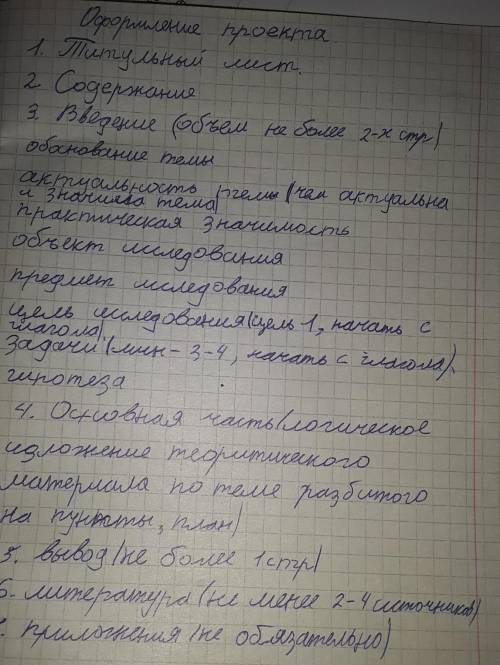 Оформление проекта
1. Титульный лист.
2. Содержание
3. Введение (объем не более 2-х стр)
обоснование темы
актуальность темы (чем актуальна
и значима тема)
практическая значимость
объект исследования
предмет исследования
цель исследования (цель 1, начать с
глагола),
задачи (мин - 3-4, начать с глагола).
гипотеза
4. Основная часть (логическое
изложение теоритического
материала по теме разбитого
на пункты, план)
5. вывод (не более 1 стр)
6. литература (не менее 2-4 источников)
приложения (не обязательно)